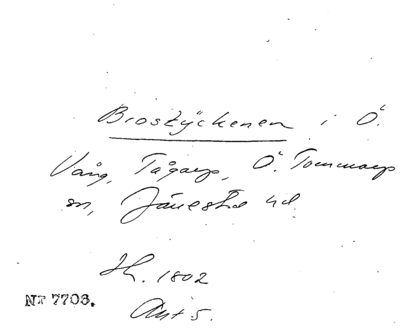 Broskyckenen i Ö.
Vång, Tågarp, Ö. Tommarp
sn, Järrestad hd.
Jh. 1802
Ant 5.
Nr 7703.